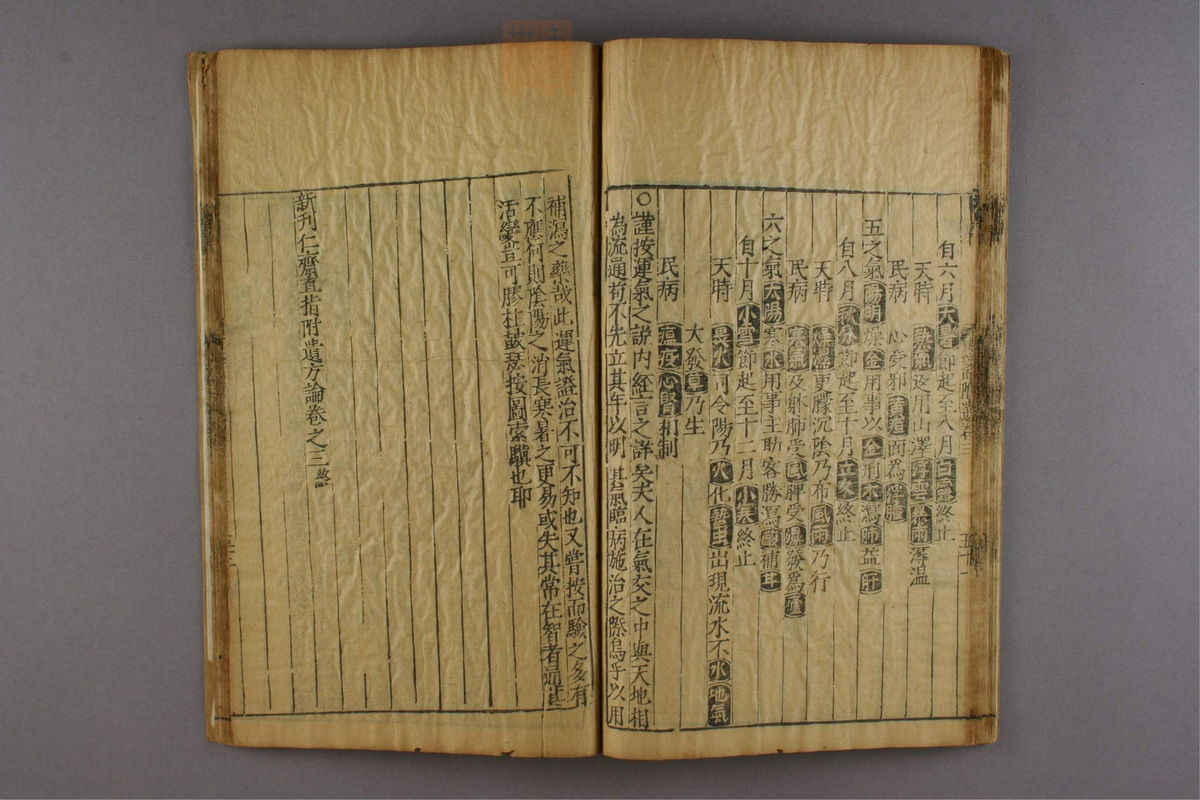 自六月大暑節起至八月白露終止
天時 熱氣返用山澤浮雲暴雨溽溫
民病 心受邪黃疸而為胕腫
五之氣陽明燥金用事以金刑木瀉肺益肝
自八月秋分節起至十月立冬終止
天時 燥濕更朦沉陰乃布風雨乃行
民病 寒氣及躰肺受風脾受濕發為瘧
六之氣太陽寒水用事主助客勝瀉酸補耳
自十月小雪節起至十二月小寒終止
天時 畏火司令陽乃火化蟄虫出現流水不氷地氣
大發草乃生
民病 瘟疫心腎相制
○謹按運氣之說內經言之詳矣夫人在氣交之中與天地相
為流通苟不先立其年以明其氣臨病施治之際烏乎以用
補瀉之藥哉此運氣證治不可不知也又嘗按而驗之多有
不應何則陰陽之消長寒暑之更易或失其常在智者通其
活變豈可膠柱鼓瑟按圖索驥也耶
新刊仁齋直指附遺方論卷之三終